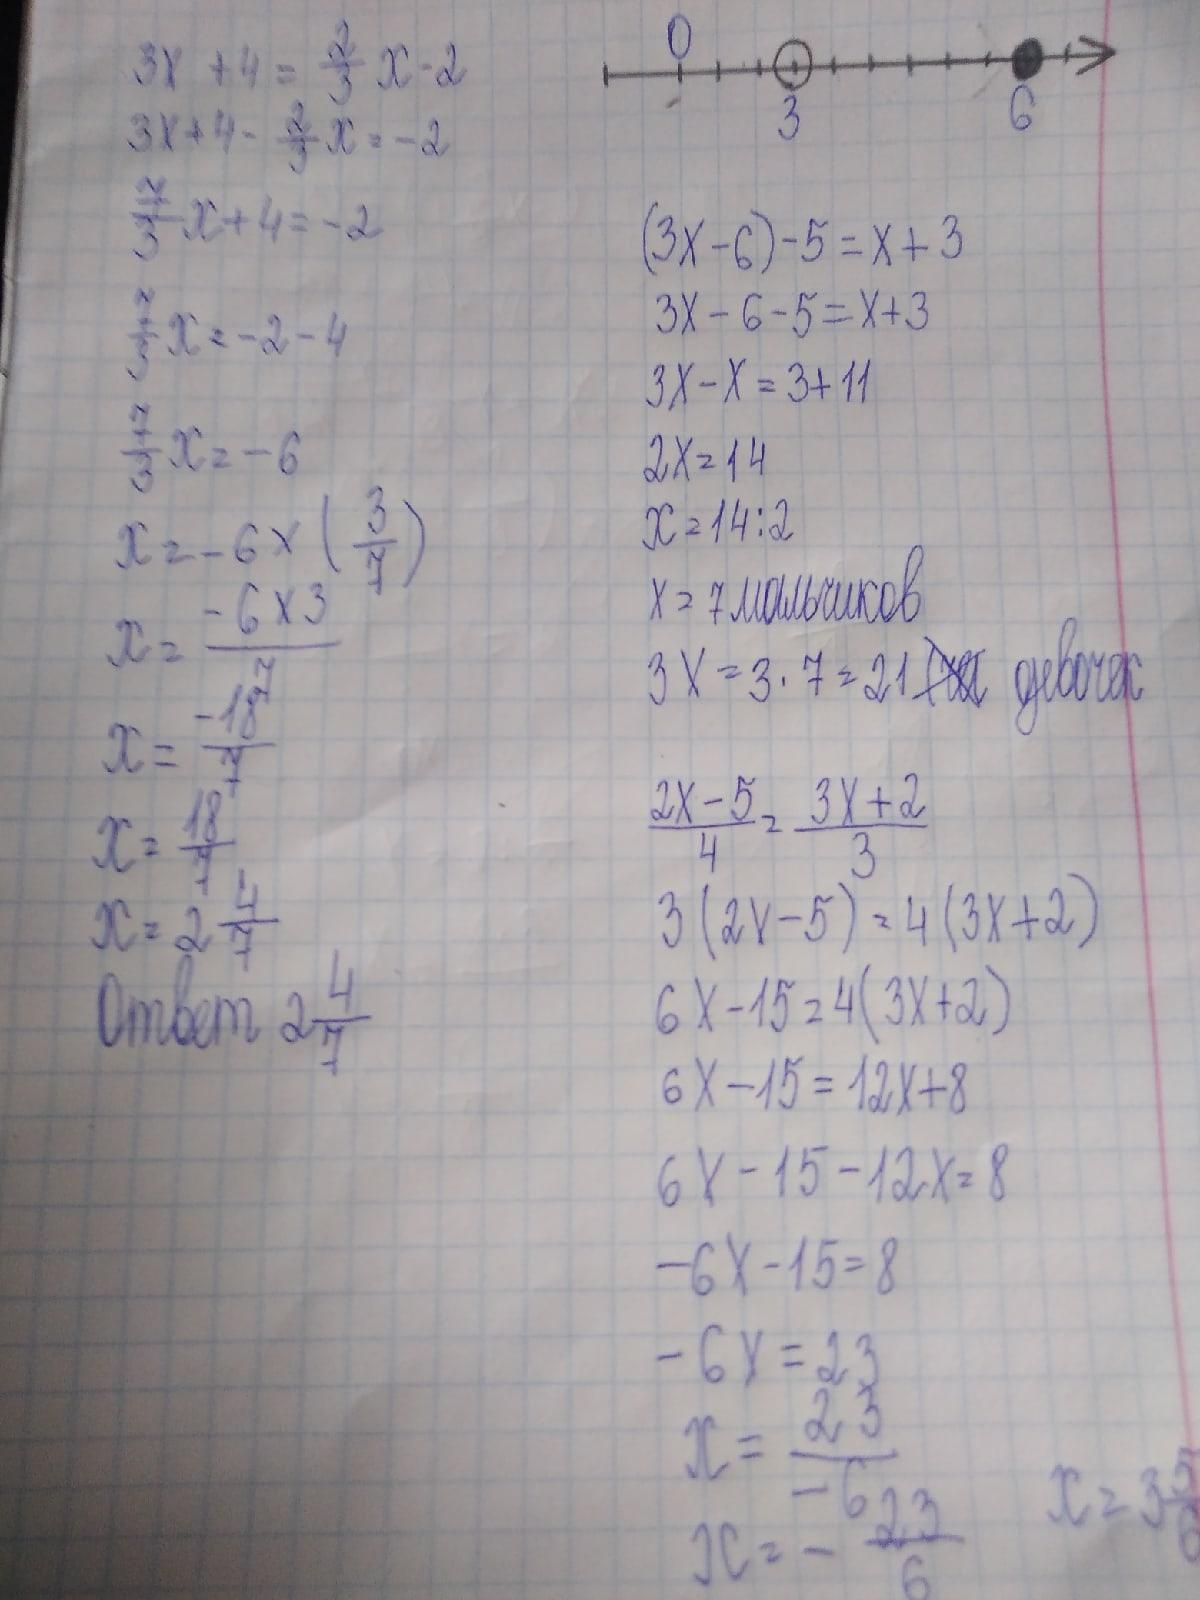 3x + 4 = 2/3 x - 2
3x + 4 - 2/3 x = -2
7/3 x + 4 = -2
7/3 x = -2 - 4
7/3 x = -6
x = -6 x (3/7)
x = -6 x 3 / 7
x = -18/7
x = 18/7
x = 2 4/7
Ответ 2 4/7
0
3 6
(3x - 6) - 5 = x + 3
3x - 6 - 5 = x + 3
3x - x = 3 + 11
2x = 14
x = 14 : 2
x = 7 мальчиков
3x = 3 · 7 = 21 девочек
2x - 5 / 4 = 3x + 2 / 3
3 (2x - 5) = 4 (3x + 2)
6x - 15 = 4 (3x + 2)
6x - 15 = 12x + 8
6x - 15 - 12x = 8
-6x - 15 = 8
-6x = 23
x = 23/-6
x = - 23/6
x = 3 5/6